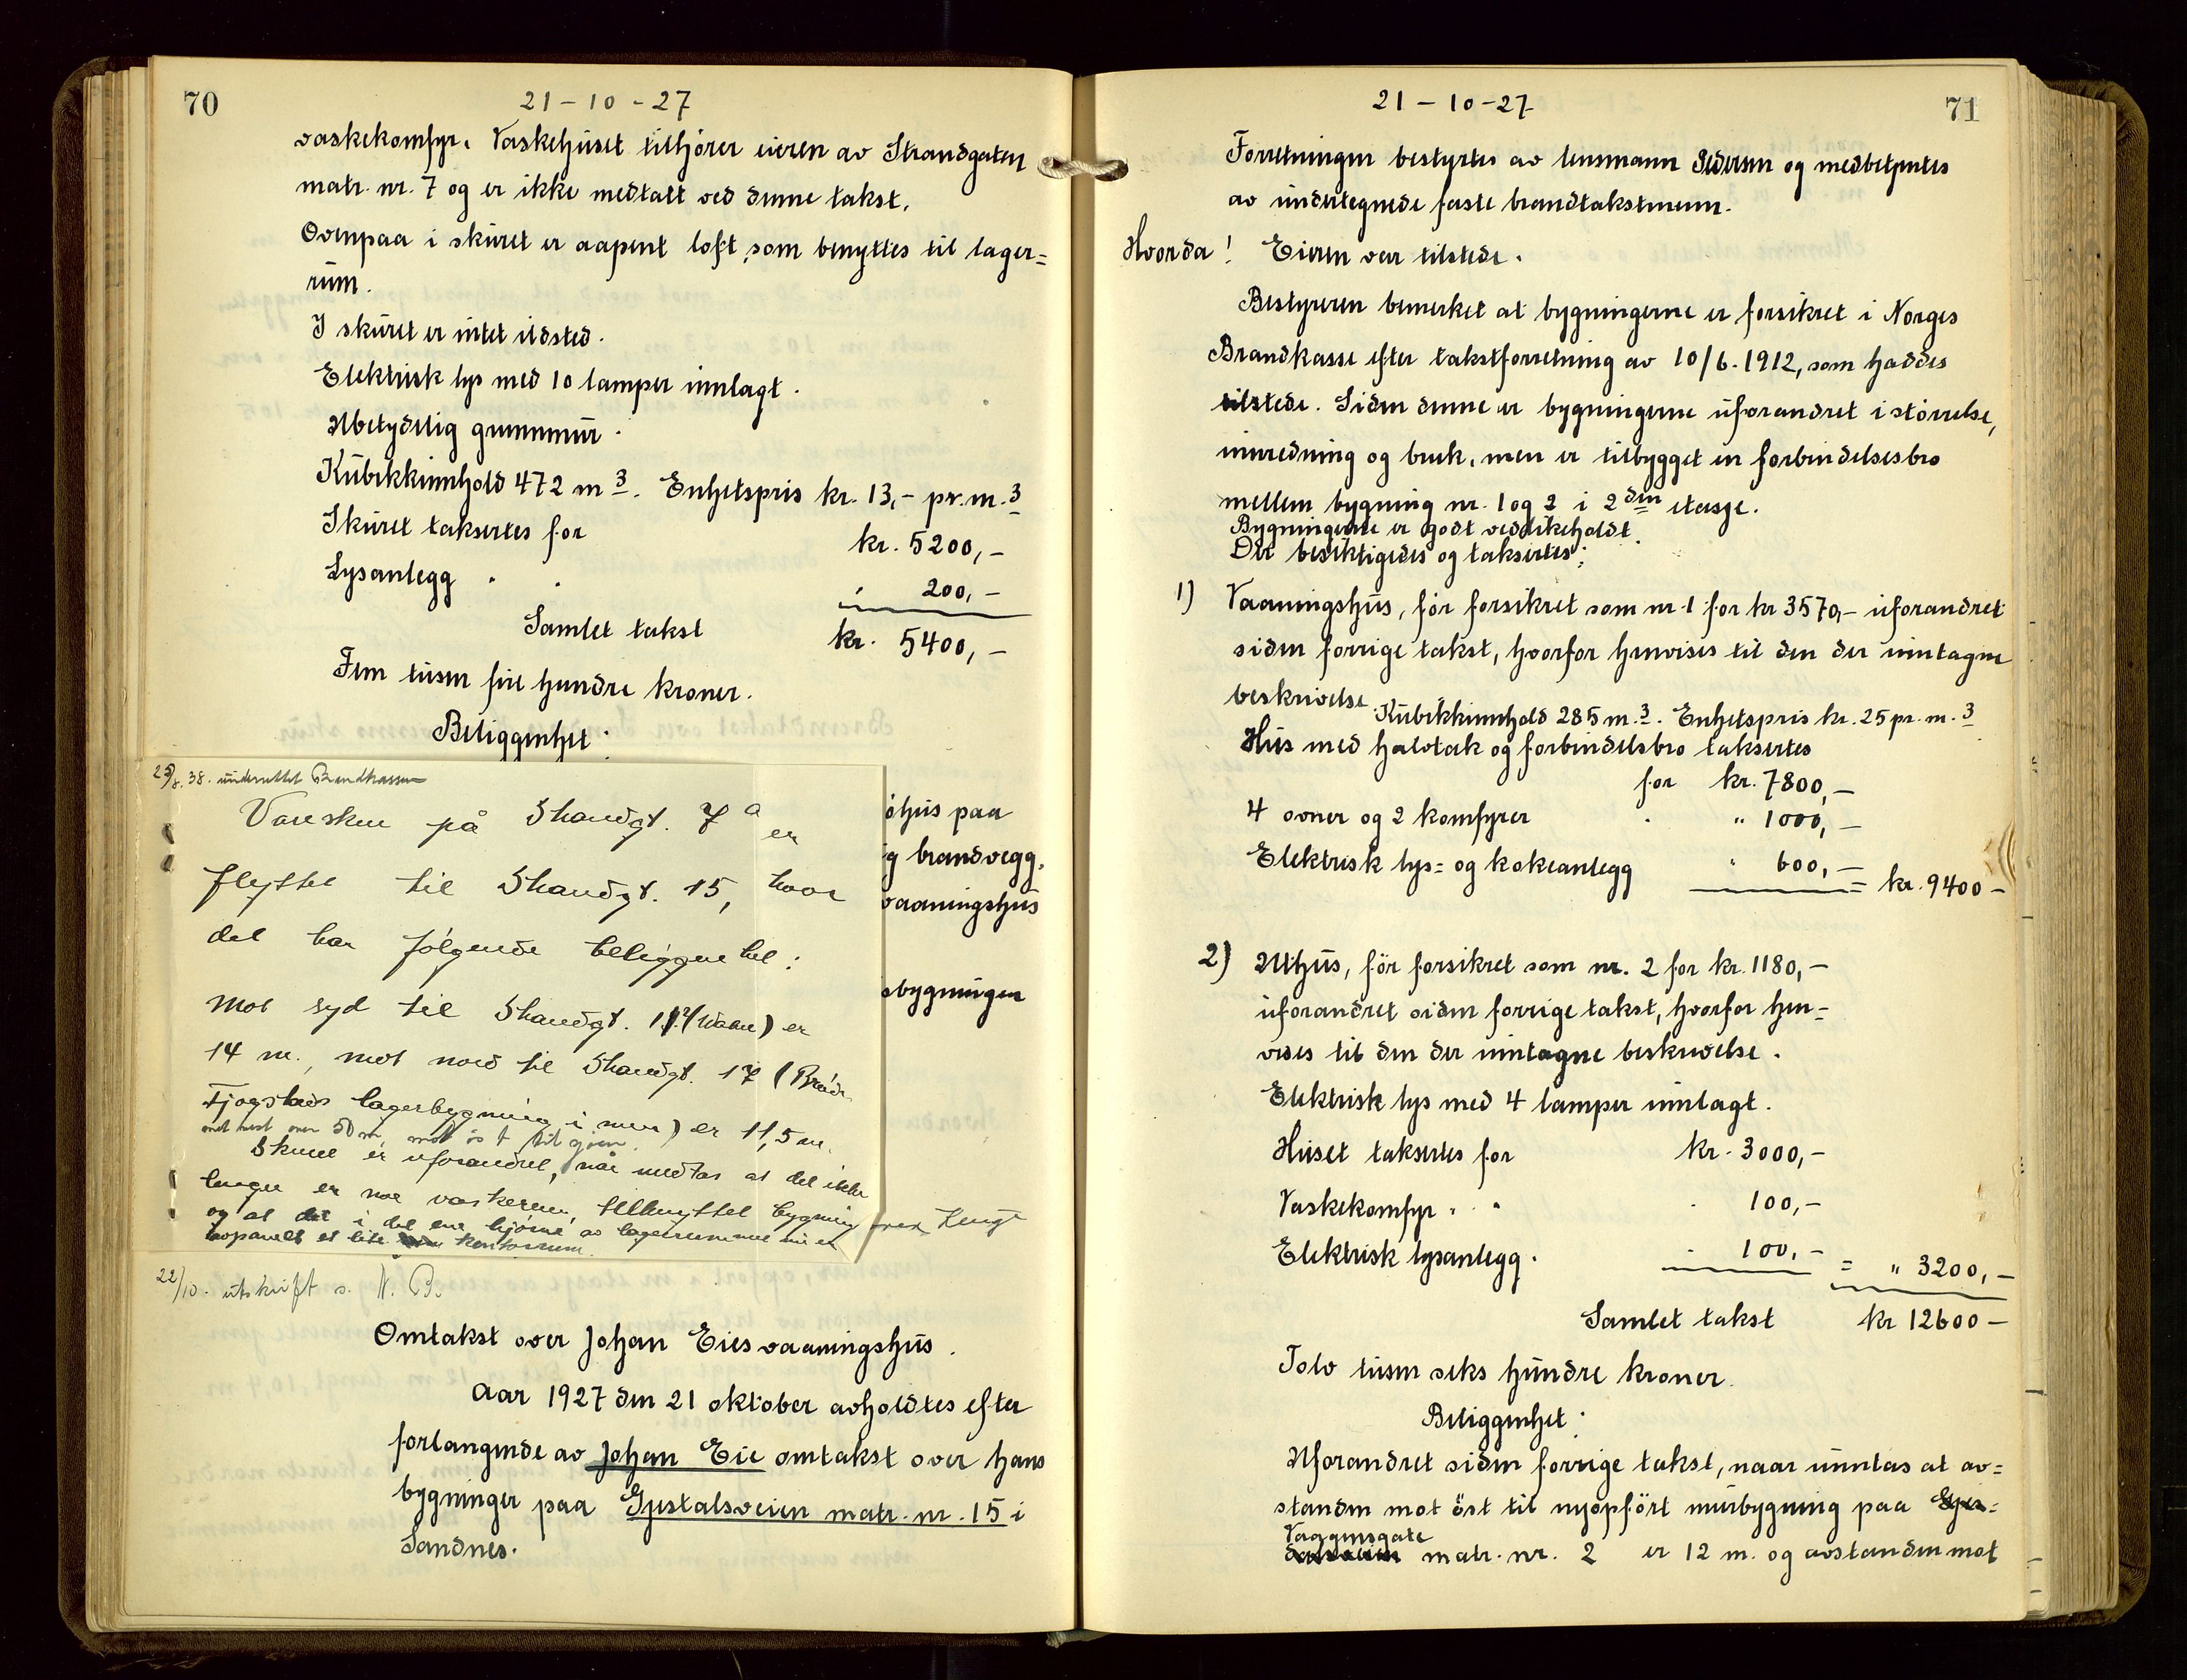 70
21-10-27
vaskekomfyr. Vaskehuset tilhører eieren av Strandgaten
matr. nr. 7 og er ikke medtatt ved denne takst.
Ovenpaa i skuret er aapent loft, som benyttes til lager=
rum.
I skuret er intet ildsted.
Elektrisk lys med 10 lamper innlagt.
Ubetydelig grunnmur.
Kubikkinnhold 472 m3. Enhetspris kr. 13,- pr. m.3
Skuret taksertes for kr. 5200,-
Lysanlegg " " " 200,-
Samlet takst kr. 5400,-
Fem tusen fire hundre kroner.
Beliggenhet:
25/8.38. underrettet Brandkassen
Vareskur på Strandgt. 7a er
flyttet til Strandgt. 15, hvor
det har følgende beliggenhet:
mot syd til Strandgt. er
14 m., mot nord til Strandgt. 17 (Brødr.
Fjogstads lagerbygning i mur) er 11,5 m.
mot vest over 50 m, mot øst til sjøen.
Skuret er uforandret, når medtas at det ikke
lenger er noe vaskerum tilknyttet bygning
og at det i det ene hjørne av lagerrummet nu er
avpanelt et lite kontorrum.
øhus paa
g brandvegg,
vaaningshus
sbygningen
22/10. utskrift s. N. B.
Omtakst over Johan Eies vaaningshus.
Aar 1927 den 21 oktober avholdtes efter
forlangende av Johan Eie omtakst over hans
bygninger paa Gjestalsveien matr. nr. 15 i
Sandnes.
71
21-10-27
Forretningen bestyrtes av lensmann Pedersen og medbetjentes
av undertegnede faste brandtakstmenn.
Hvorda! Eieren var tilstede.
Bestyreren bemerket at bygningerne er forsikret i Norges
Brandkasse efter takstforretning av 10/6. 1912, som haddes
tilstede. Siden denne er bygningerne uforandret i størrelse,
innredning og bruk, men er tilbygget en forbindelsesbro
mellem bygning nr. 1 og 2 i 2den etasje.
Bygningerne er godt vedlikeholdt.
Der besiktigedes og taksertes:
1) Vaaningshus, før forsikret som nr. 1 for kr 3570,- uforandret
siden forrige takst, hvorfor henvises til den der inntagne
beskrivelse. Kubikkinnhold 285 m.3. Enhetspris kr. 25 pr. m.3
Hus med halvtak og forbindelsbro taksertes
for kr. 7800,-
4 ovner og 2 komfyrer " " 1000,-
Elektrisk lys= og kokeanlegg " 600,- = kr. 9400-
2) Uthus, før forsikret som nr. 2 for kr. 1180,-
uforandret siden forrige takst, hvorfor hen=
vises til den der inntagne beskrivelse.
Elektrisk lys med 4 lamper innlagt.
Huset taksertes for kr. 3000,-
Vaskekomfyr " " " 100,-
Elektrisk lysanlegg " " 100,- = " 3200,-
Samlet takst kr 12600-
Tolv tusen seks hundre kroner.
Beliggenhet:
Uforandret siden forrige takst, naar unntas at av=
standen mot øst til nyopført murbygning paa Gjes=
Vaagensgate
dalsveien matr. nr. 2 er 12 m. og avstanden mot